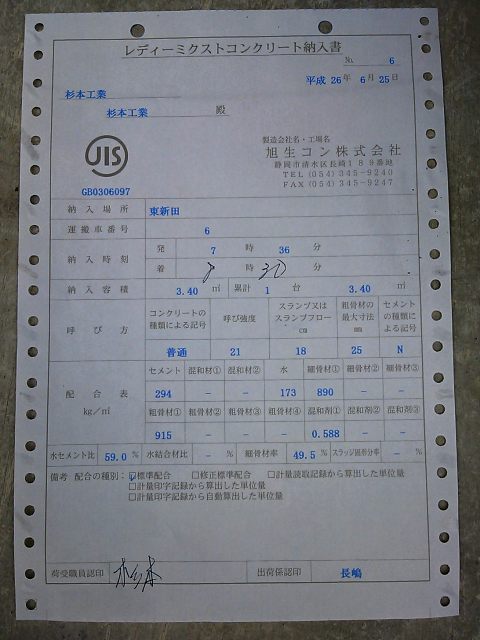 レディーミクストコンクリート納入書
No. 6
平成 26年 6月 25日
杉本工業
杉本工業 殿
JIS
GB0306097
製造会社名・工場名
旭生コン株式会社
静岡市清水区長崎189番地
TEL (054) 345-9240
FAX (054) 345-9247
納入場所 東新田
運搬車番号 6
納入時刻 発 7 時 36 分
着 時 30 分
納入容積 3.40 ㎥ 累計 1 台 3.40 ㎥
呼び方 コンクリートの種類による記号 呼び強度 スランプ又はスランプフロー cm 粗骨材の最大寸法 mm セメントの種類による記号
普通 21 18 25 N
配合表 kg/㎥
セメント 混和材① 混和材② 水 細骨材① 細骨材② 細骨材③
294 － － 173 890 － －
粗骨材① 粗骨材② 粗骨材③ 粗骨材④ 混和剤① 混和剤② 混和剤③
915 － － － 0.588 － －
水セメント比 59.0 % 水結合材比 － % 細骨材率 49.5 % スラッジ固形分率 － %
備考 配合の種別: ☑標準配合 □修正標準配合 □計量読取記録から算出した単位量
□計量印字記録から算出した単位量
□計量印字記録から自動算出した単位量
荷受職員認印 出荷係認印 長嶋